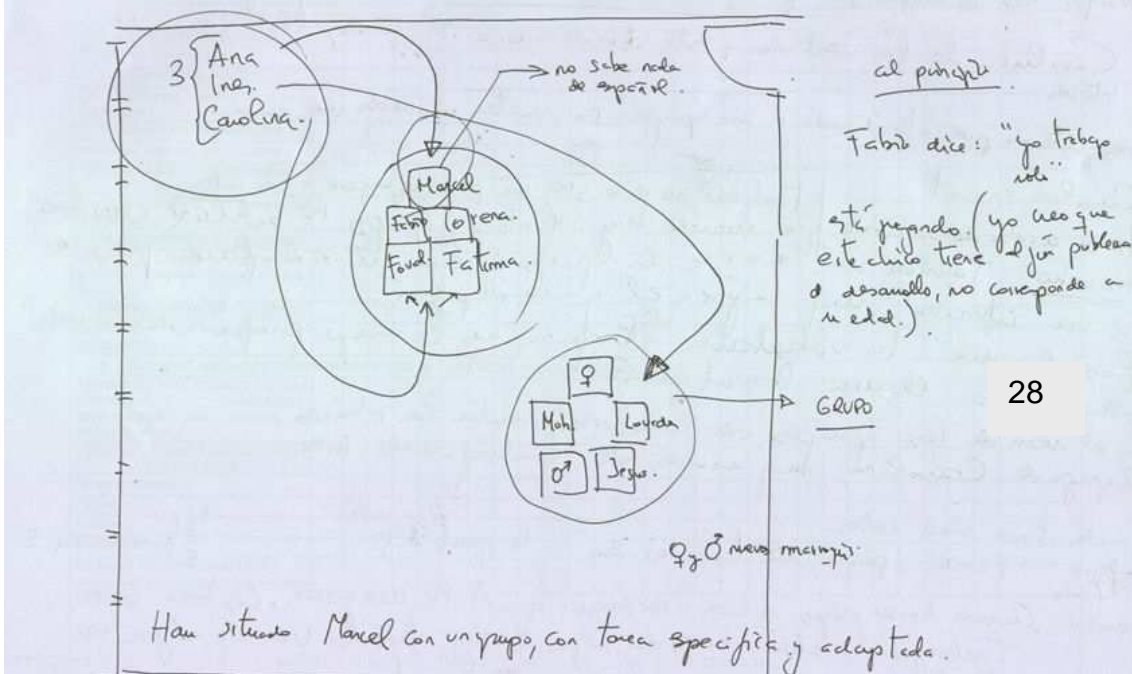 3 { Ana
Ines
Carolina.
no sabe nada
de español.
Marcel
Fabio Lorena.
Fouad Fatima.
♀
Moh. Lourdes
♂ Jesus.
al principio
Fabio dice: "yo trabajo
solo"
está jugando. (yo creo que
este chico tiene algún problema
d desarrollo, no corresponde a
su edad.)
GRUPO
28
♀ y ♂ nuevo
Han situado Marcel con un grupo, con tarea específica y adaptada.